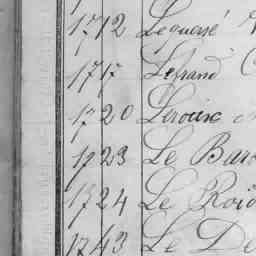 1712 Lequersé
1717 Lefrand
1720 Leroux
1723 Le Bar
1724 Le Roid
1743 Le De